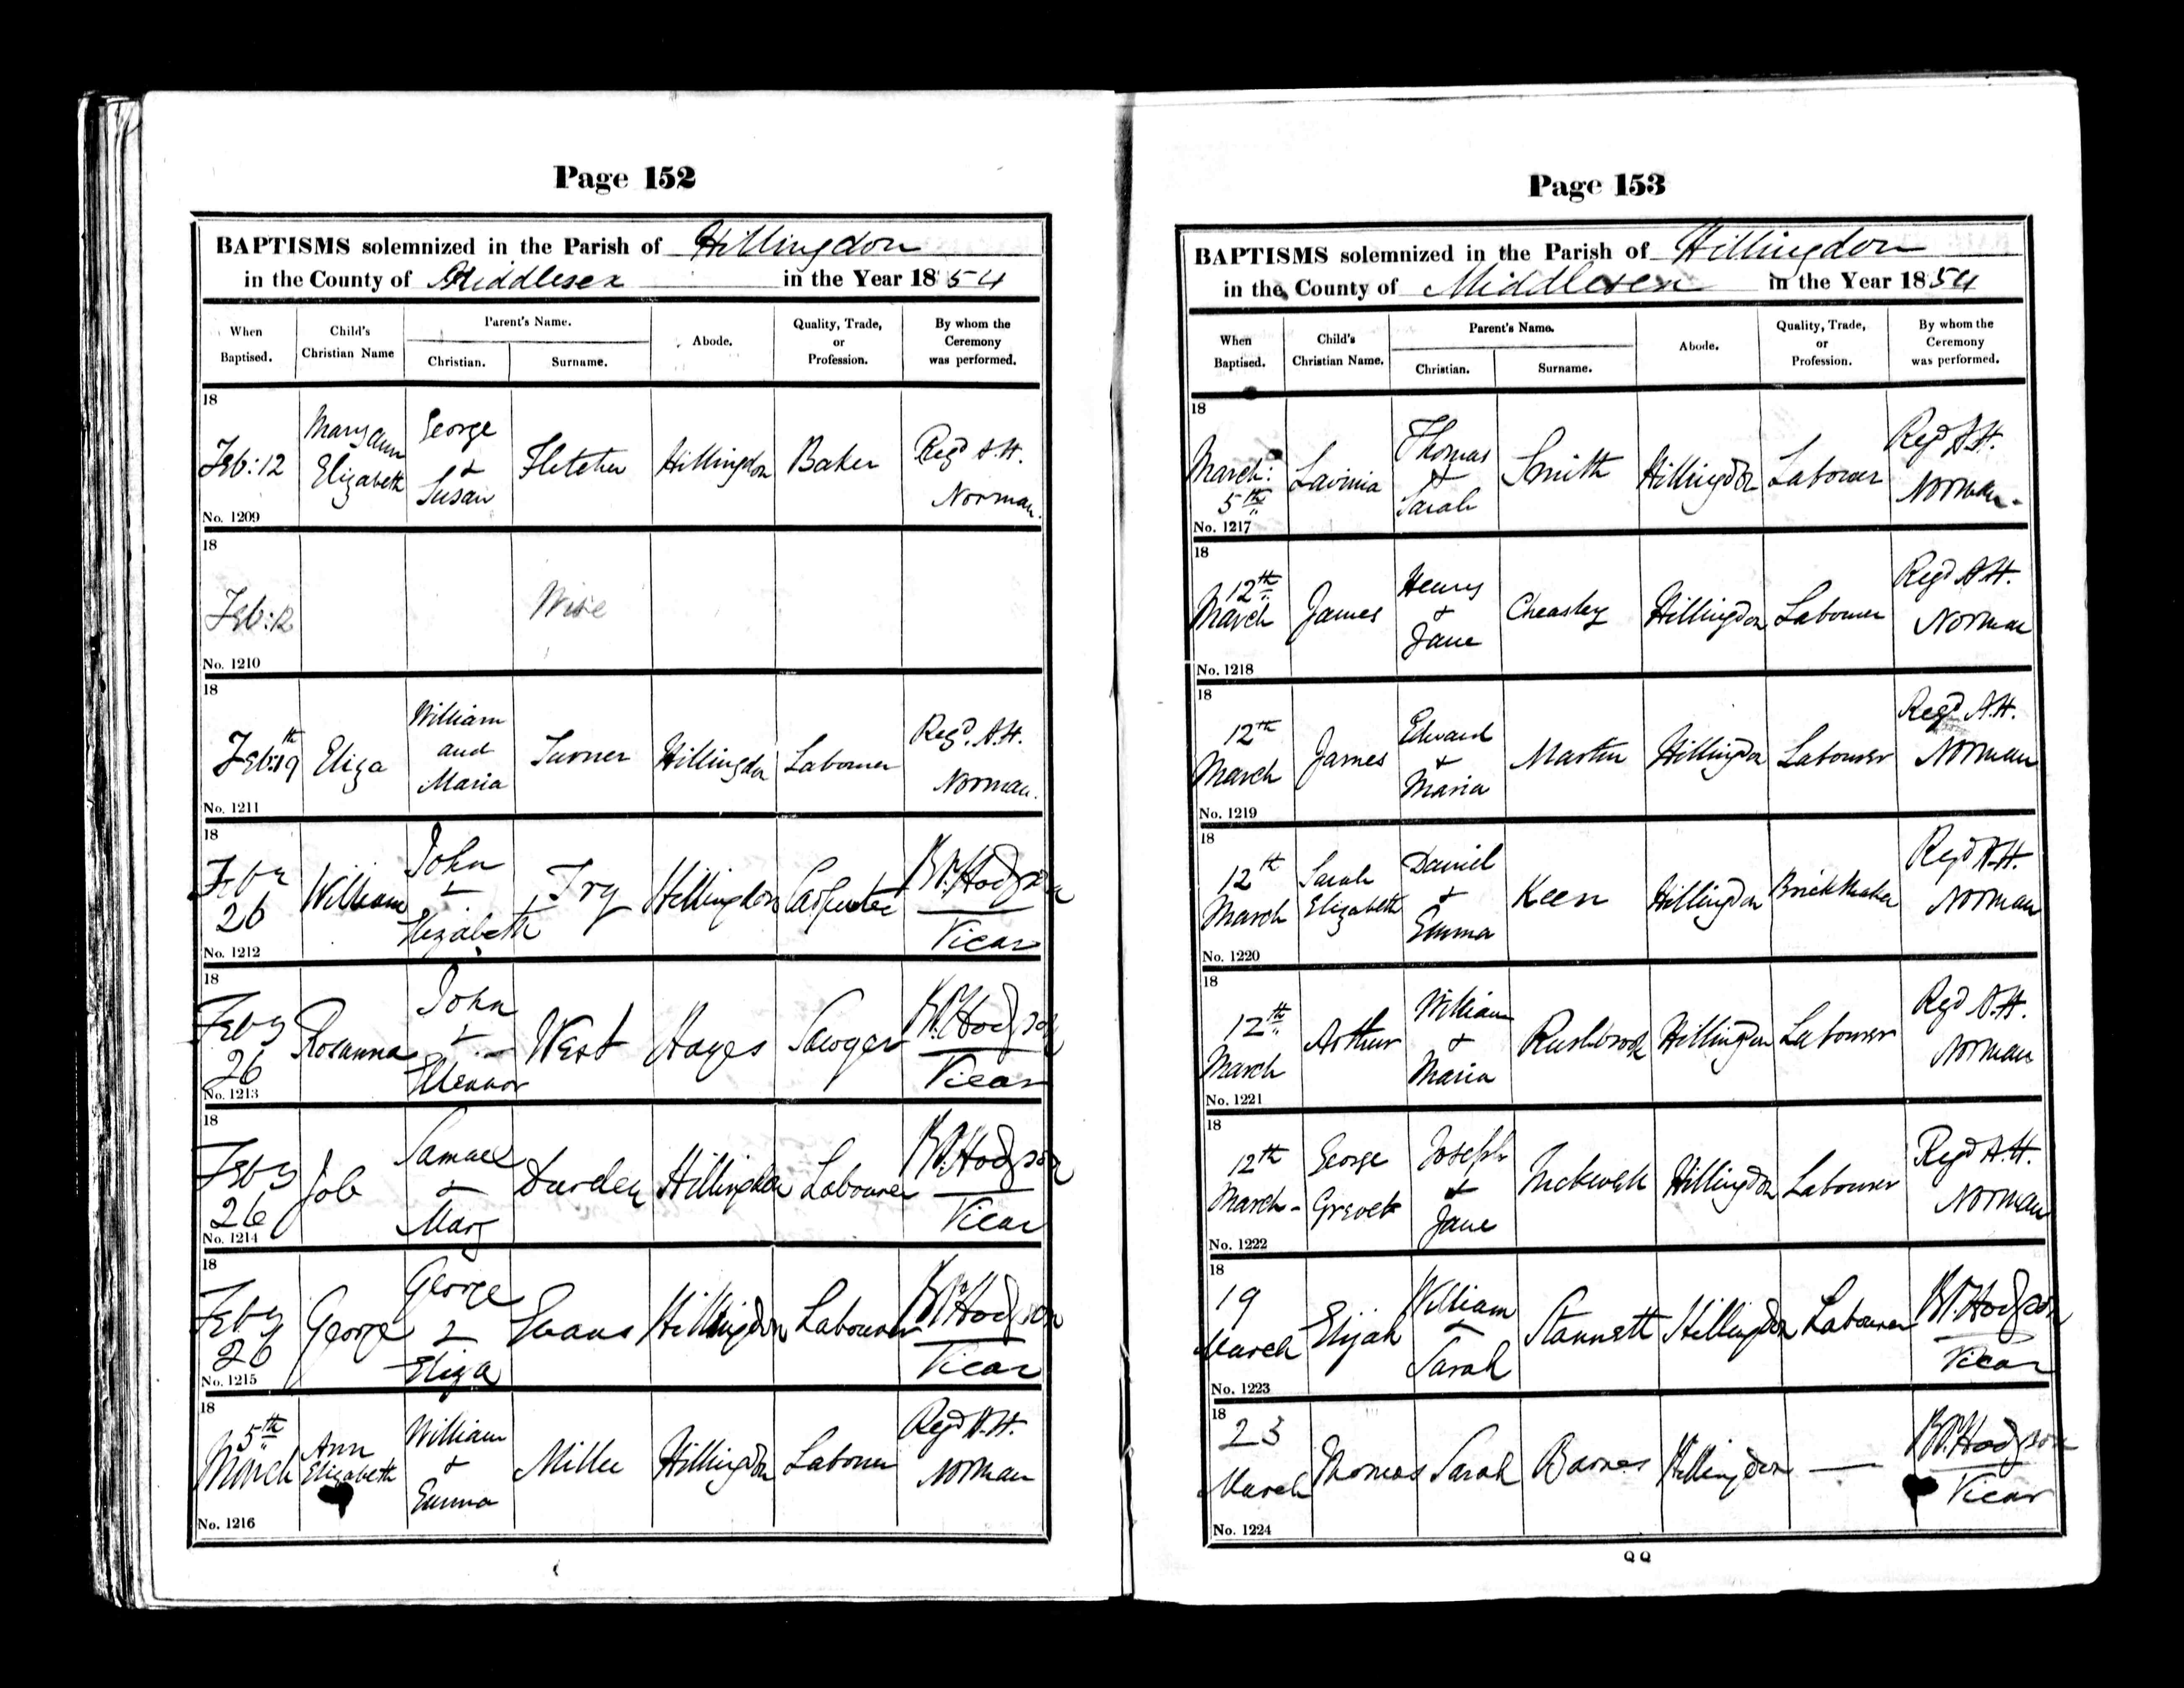 Page 152
BAPTISMS solemnized in the Parish of Hillingdon
in the County of Middlesex in the Year 1854
When Baptised. Child's Christian Name Parent's Name. Christian. Surname. Abode. Quality, Trade, or Profession. By whom the Ceremony was performed.
18 Feb: 12 Mary Ann Elizabeth George & Susan Fletcher Hillingdon Baker Regd A.H. Norman.
No. 1209
18 Feb: 12 Wise
No. 1210
18 Feb: 19th Eliza William and Maria Turner Hillingdon Labourer Regd. A.H. Norman.
No. 1211
18 Feby 26 William John & Elizabeth Try Hillingdon Carpenter Hodgson Vicar
No. 1212
18 Feby 26 Rosanna John & Eleanor West Hayes Sawyer Hodgson Vicar
No. 1213
18 Feby 26 Job Samuel & Mary Durden Hillingdon Labourer Hodgson Vicar
No. 1214
18 Feby 26 George George & Eliza Evans Hillingdon Labourer Hodgson Vicar
No. 1215
18 5th March Ann Elizabeth William & Emma Miller Hillingdon Labourer Regd A.H. Norman
No. 1216
Page 153
BAPTISMS solemnized in the Parish of Hillingdon
in the County of Middlesex in the Year 1854
When Baptised. Child's Christian Name. Parent's Name. Christian. Surname. Abode. Quality, Trade, or Profession. By whom the Ceremony was performed.
18 March: 5th Lavinia Thomas & Sarah Smith Hillingdon Labourer Regd A.H. Norman.
No. 1217
18 12th March James Henry & Jane Cheasley Hillingdon Labourer Regd A.H. Norman
No. 1218
18 12th March James Edward & Maria Martin Hillingdon Labourer Regd A.H. Norman
No. 1219
18 12th March Sarah Elizabeth Daniel & Emma Keen Hillingdon Brick Maker Regd A.H. Norman
No. 1220
18 12th March Arthur William & Maria Rushbrook Hillingdon Labourer Regd A.H. Norman
No. 1221
18 12th March - George Joseph & Jane Hillingdon Labourer Regd A.H. Norman
No. 1222
18 19 March Elijah William & Sarah Stannett Hillingdon Labourer Hodgson Vicar
No. 1223
18 23 March Thomas Sarah Barnes Hillingdon — Hodgson Vicar
No. 1224
QQ